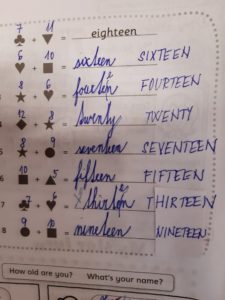 7 11
+ = eighteen
6 10
+ = sixteen SIXTEEN
8 6
+ = fourteen FOURTEEN
12 8
4 + = twenty TWENTY
8 9
5 + = seventeen SEVENTEEN
10 5
6 + = fifteen FIFTEEN
+ = thirteen THIRTEEN
9 10
8 + = nineteen NINETEEN
How old are you? What's your name?